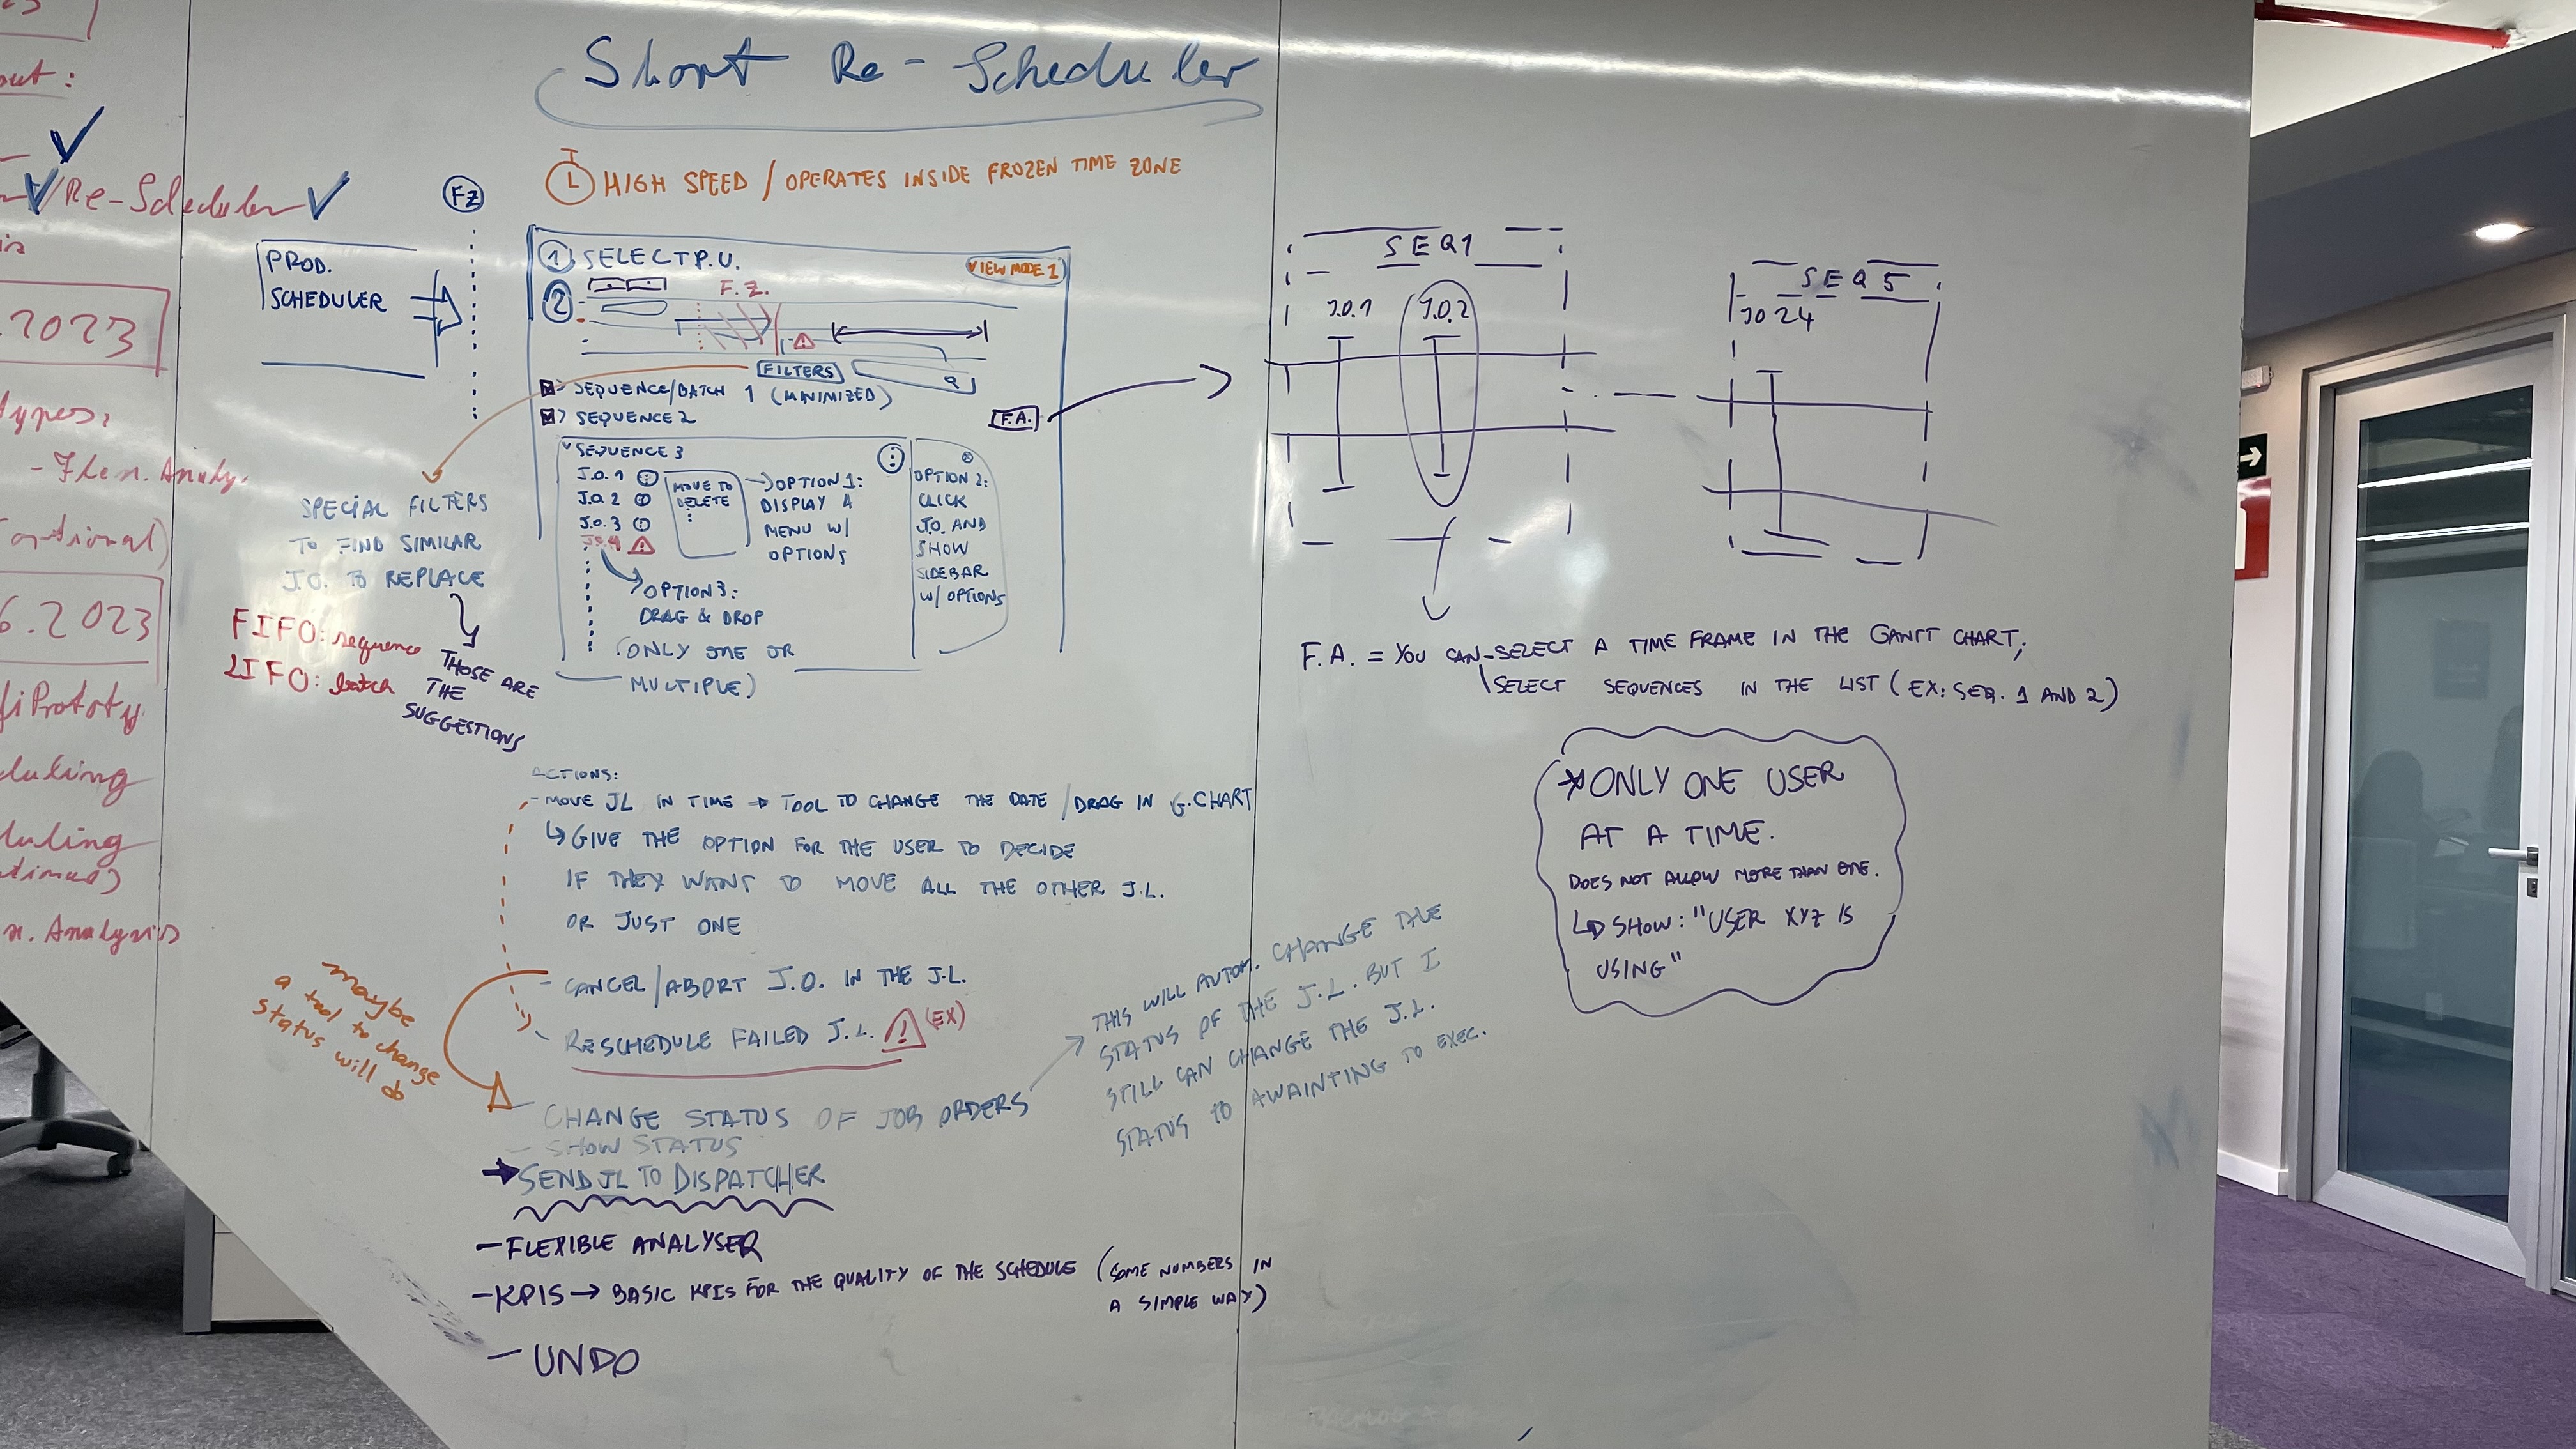 Short Re-Scheduler
HIGH SPEED / OPERATES INSIDE FROZEN TIME ZONE
out:
/Re-Scheduler
.2023
types:
- Flex. Analy.
6.2023
duling
duling
x. Analysis
FZ
PROD.
SCHEDULER
1 SELECT P.U.
VIEW MODE 1
2
F. Z.
FILTERS
> SEQUENCE/BATCH 1 (MINIMIZED)
> SEQUENCE 2
F.A.
SEQUENCE 3
J.O. 1
J.O. 2
J.O. 3
J.O. 4
MOVE TO
DELETE
OPTION 1:
DISPLAY A
MENU W/
OPTIONS
OPTION 2:
CLICK
J.O. AND
SHOW
SIDEBAR
W/ OPTIONS
OPTION 3:
DRAG & DROP
(ONLY ONE OR
MULTIPLE)
SPECIAL FILTERS
TO FIND SIMILAR
J.O. TO REPLACE
FIFO: sequence
LIFO: batch
THOSE ARE
THE
SUGGESTIONS
SEQ1
J.O.1
J.O.2
SEQ 5
JO 24
F.A. = YOU CAN SELECT A TIME FRAME IN THE GANTT CHART;
SELECT SEQUENCES IN THE LIST (EX: SEQ. 1 AND 2)
* ONLY ONE USER
AT A TIME.
DOES NOT ALLOW MORE THAN ONE.
SHOW: "USER XYZ IS
USING"
ACTIONS:
- MOVE JL IN TIME → TOOL TO CHANGE THE DATE / DRAG IN G. CHART
↳ GIVE THE OPTION FOR THE USER TO DECIDE
IF THEY WANT TO MOVE ALL THE OTHER J.L.
OR JUST ONE
- CANCEL/ABORT J.O. IN THE J.L.
- RESCHEDULE FAILED J.L. (EX)
maybe
a tool to change
status will do
- CHANGE STATUS OF JOB ORDERS
THIS WILL AUTOM. CHANGE THE
STATUS OF THE J.L. BUT I
STILL CAN CHANGE THE J.L.
STATUS TO AWAINTING TO EXEC.
- SHOW STATUS
→ SEND JL TO DISPATCHER
- FLEXIBLE ANALYSER
- KPIS → BASIC KPIS FOR THE QUALITY OF THE SCHEDULE (SOME NUMBERS IN
A SIMPLE WAY)
- UNDO